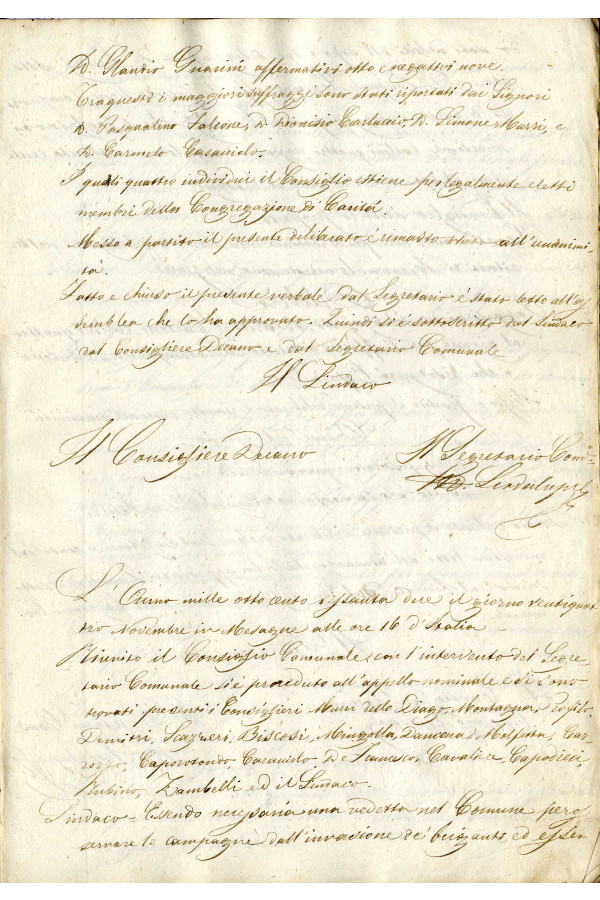 D. Claudio Guarini affermativi otto e negativi nove.
Tra questi i maggiori suffraggi sono stati riportati dai Signori
D. Pasqualino Falcone, D. Dionisio Carluccio, D. Simone Murri, e
D. Carmelo Cavaliolo.
I quali quattro individui il Consiglio ritiene per legalmente eletti
membri della Congregazione di Carità.
Messo a partito il presente deliberato è rimasto all'unanimi-
tà.
Fatto e chiuso il presente verbale dal Segretario è stato letto all'as
semblea che lo ha approvato. Quindi si è sottoscritto dal Sindaco
dal Consigliere Decano e dal Segretario Comunale
Il Sindaco
Il Consigliere Decano
Il Segretario Com.
L'Anno mille otto cento sessanta due il giorno ventiquat
tro Novembre in Mesagne alle ore 16 d'Italia
Riunito il Consiglio Comunale, con l'intervento del Segre-
tario Comunale si è proceduto all'appello nominale e si sono
trovati presenti i Consiglieri Murri dello Diago, Montagna, Profilo,
Demitri, Scazzeri, Biscosi, Mingolla, Malfitta, Ca-
rozzo, Caporotondo, De Francesco, Cavaliere, Capodieci,
Rubino, Zambelli ed il Sindaco.
Sindaco = Essendo necessaria una vedetta nel Comune pero
servare le campagne dall'invasione de' briganti ed essen